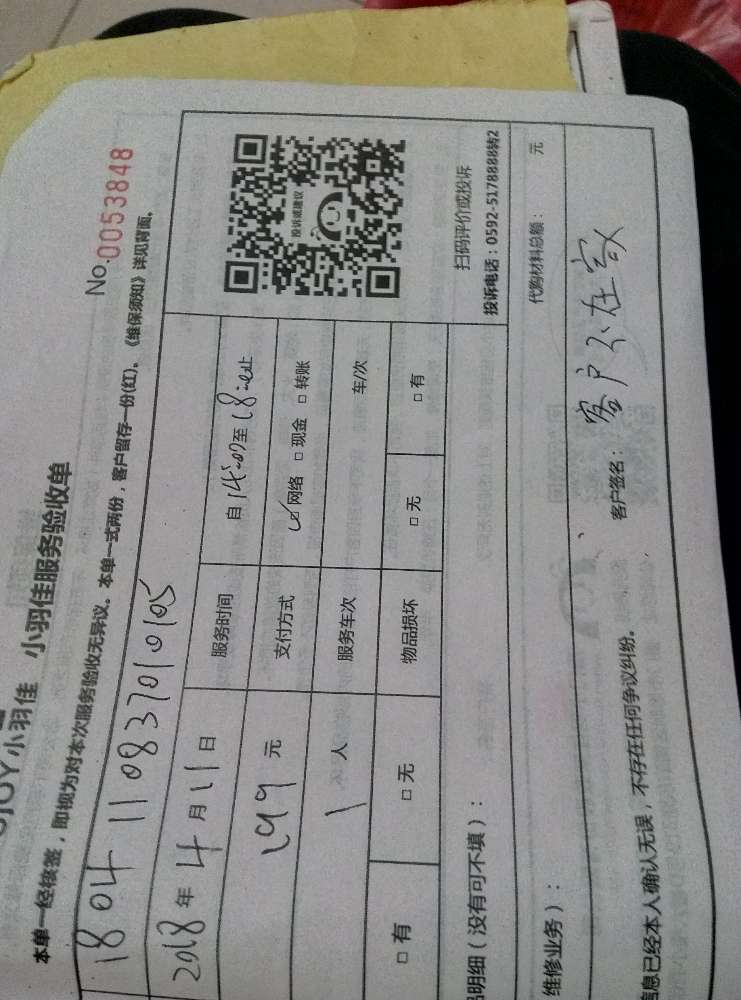 小羽佳 小羽佳服务验收单
No.0053848
本单一经核签，即视为对本次服务验收无异议。本单一式两份，客户留存一份(红)。《维保须知》详见背面。
1804110837010105
2018年4月11日 服务时间 自14:00至18:00止
199元 支付方式 ☑网络 □现金 □转账
1人 服务车次 车/次
□有 □无 物品损坏 □无 □有
投诉或建议
扫码评价或投诉
投诉电话：0592-5178888转2
明细（没有可不填）：
维修业务）： 代购材料总额： 元
息已经本人确认无误，不存在任何争议纠纷。 客户签名： 客户不在家